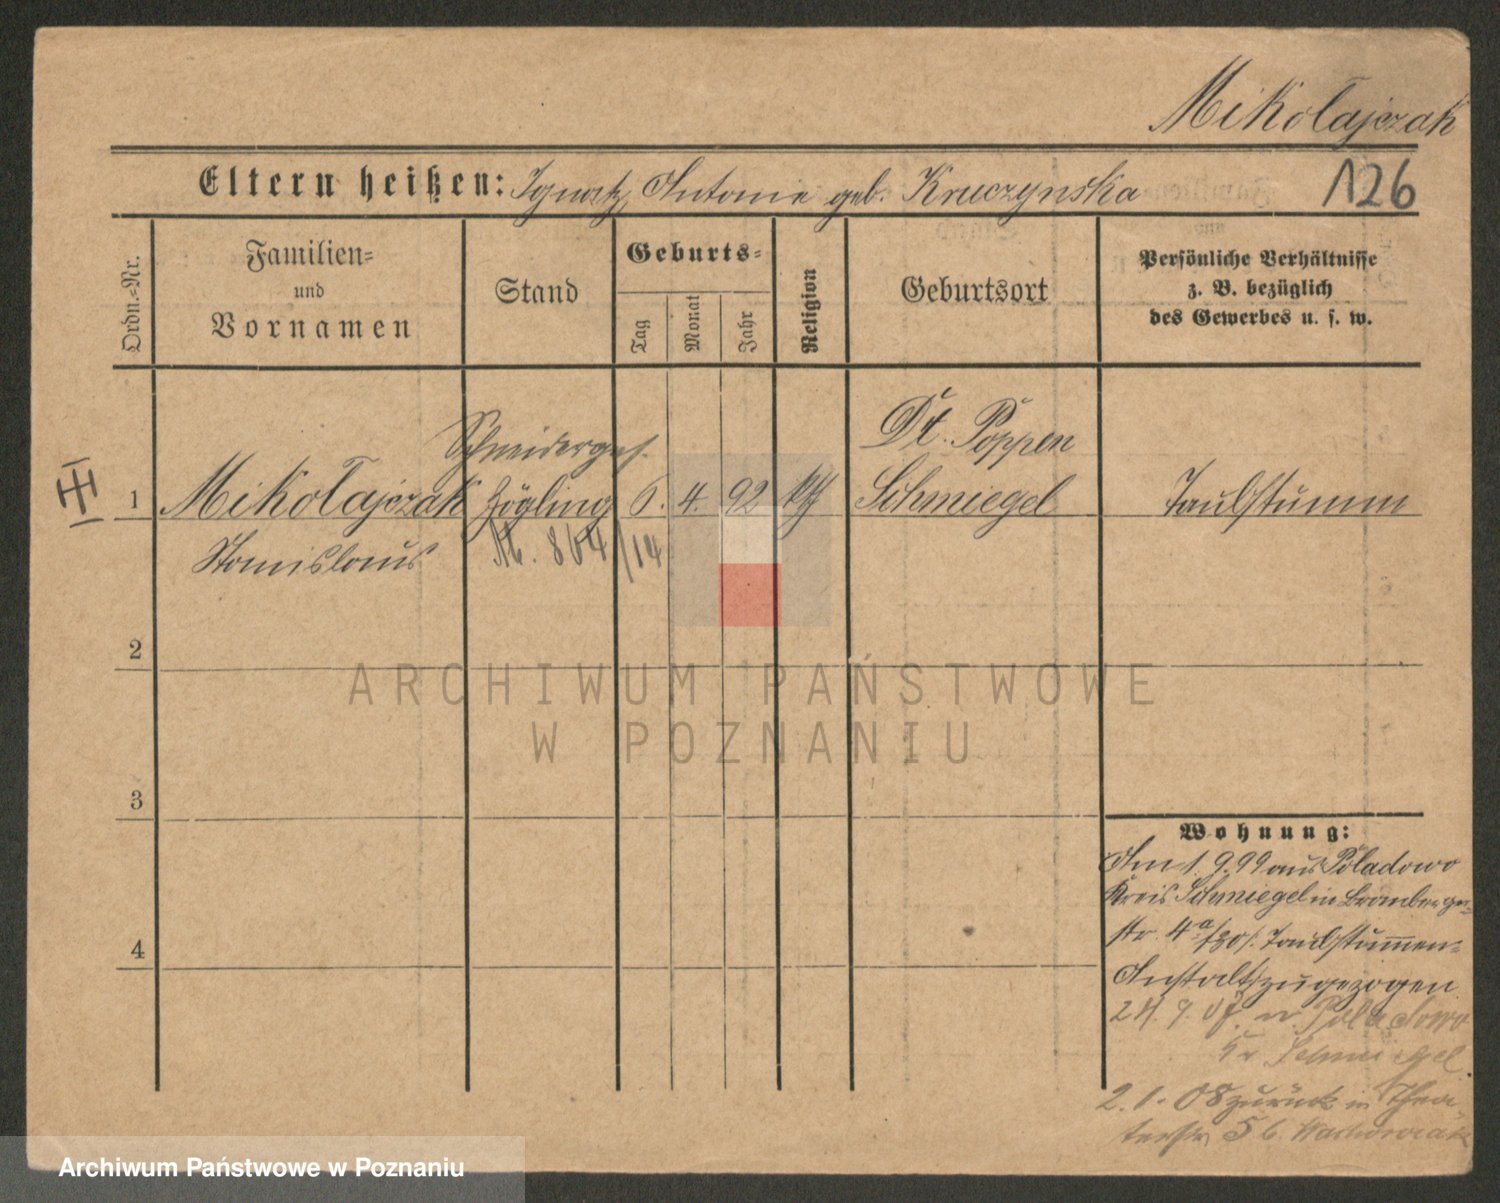 Mikołajczak
Eltern heißen: Ignatz, Antonie geb. Kruczynska
126
Ordn.-Nr.
Familien-
und
Vornamen
Stand
Geburts-
Tag
Monat
Jahr
Religion
Geburtsort
Persönliche Verhältnisse
z. B. bezüglich
des Gewerbes u. s. w.
Schneiderges.
Dt. Poppen
III
1 Mikołajczak Zögling 6. 4. 92 kth Schmiegel Taubstumm
Stanislaus 864/14
2
3
4
Wohnung:
Am 1.9.99 aus Poladowo
Kreis Schmiegel in Bromberger-
str. 4a Taubstummen-
Anstalt zugezogen
24.9.07. n. Poladowo
Kr Schmiegel
2.1.08 zurück in Thea-
terstr 5 b. Wachowiak
ARCHIWUM PAŃSTWOWE
W POZNANIU
Archiwum Państwowe w Poznaniu